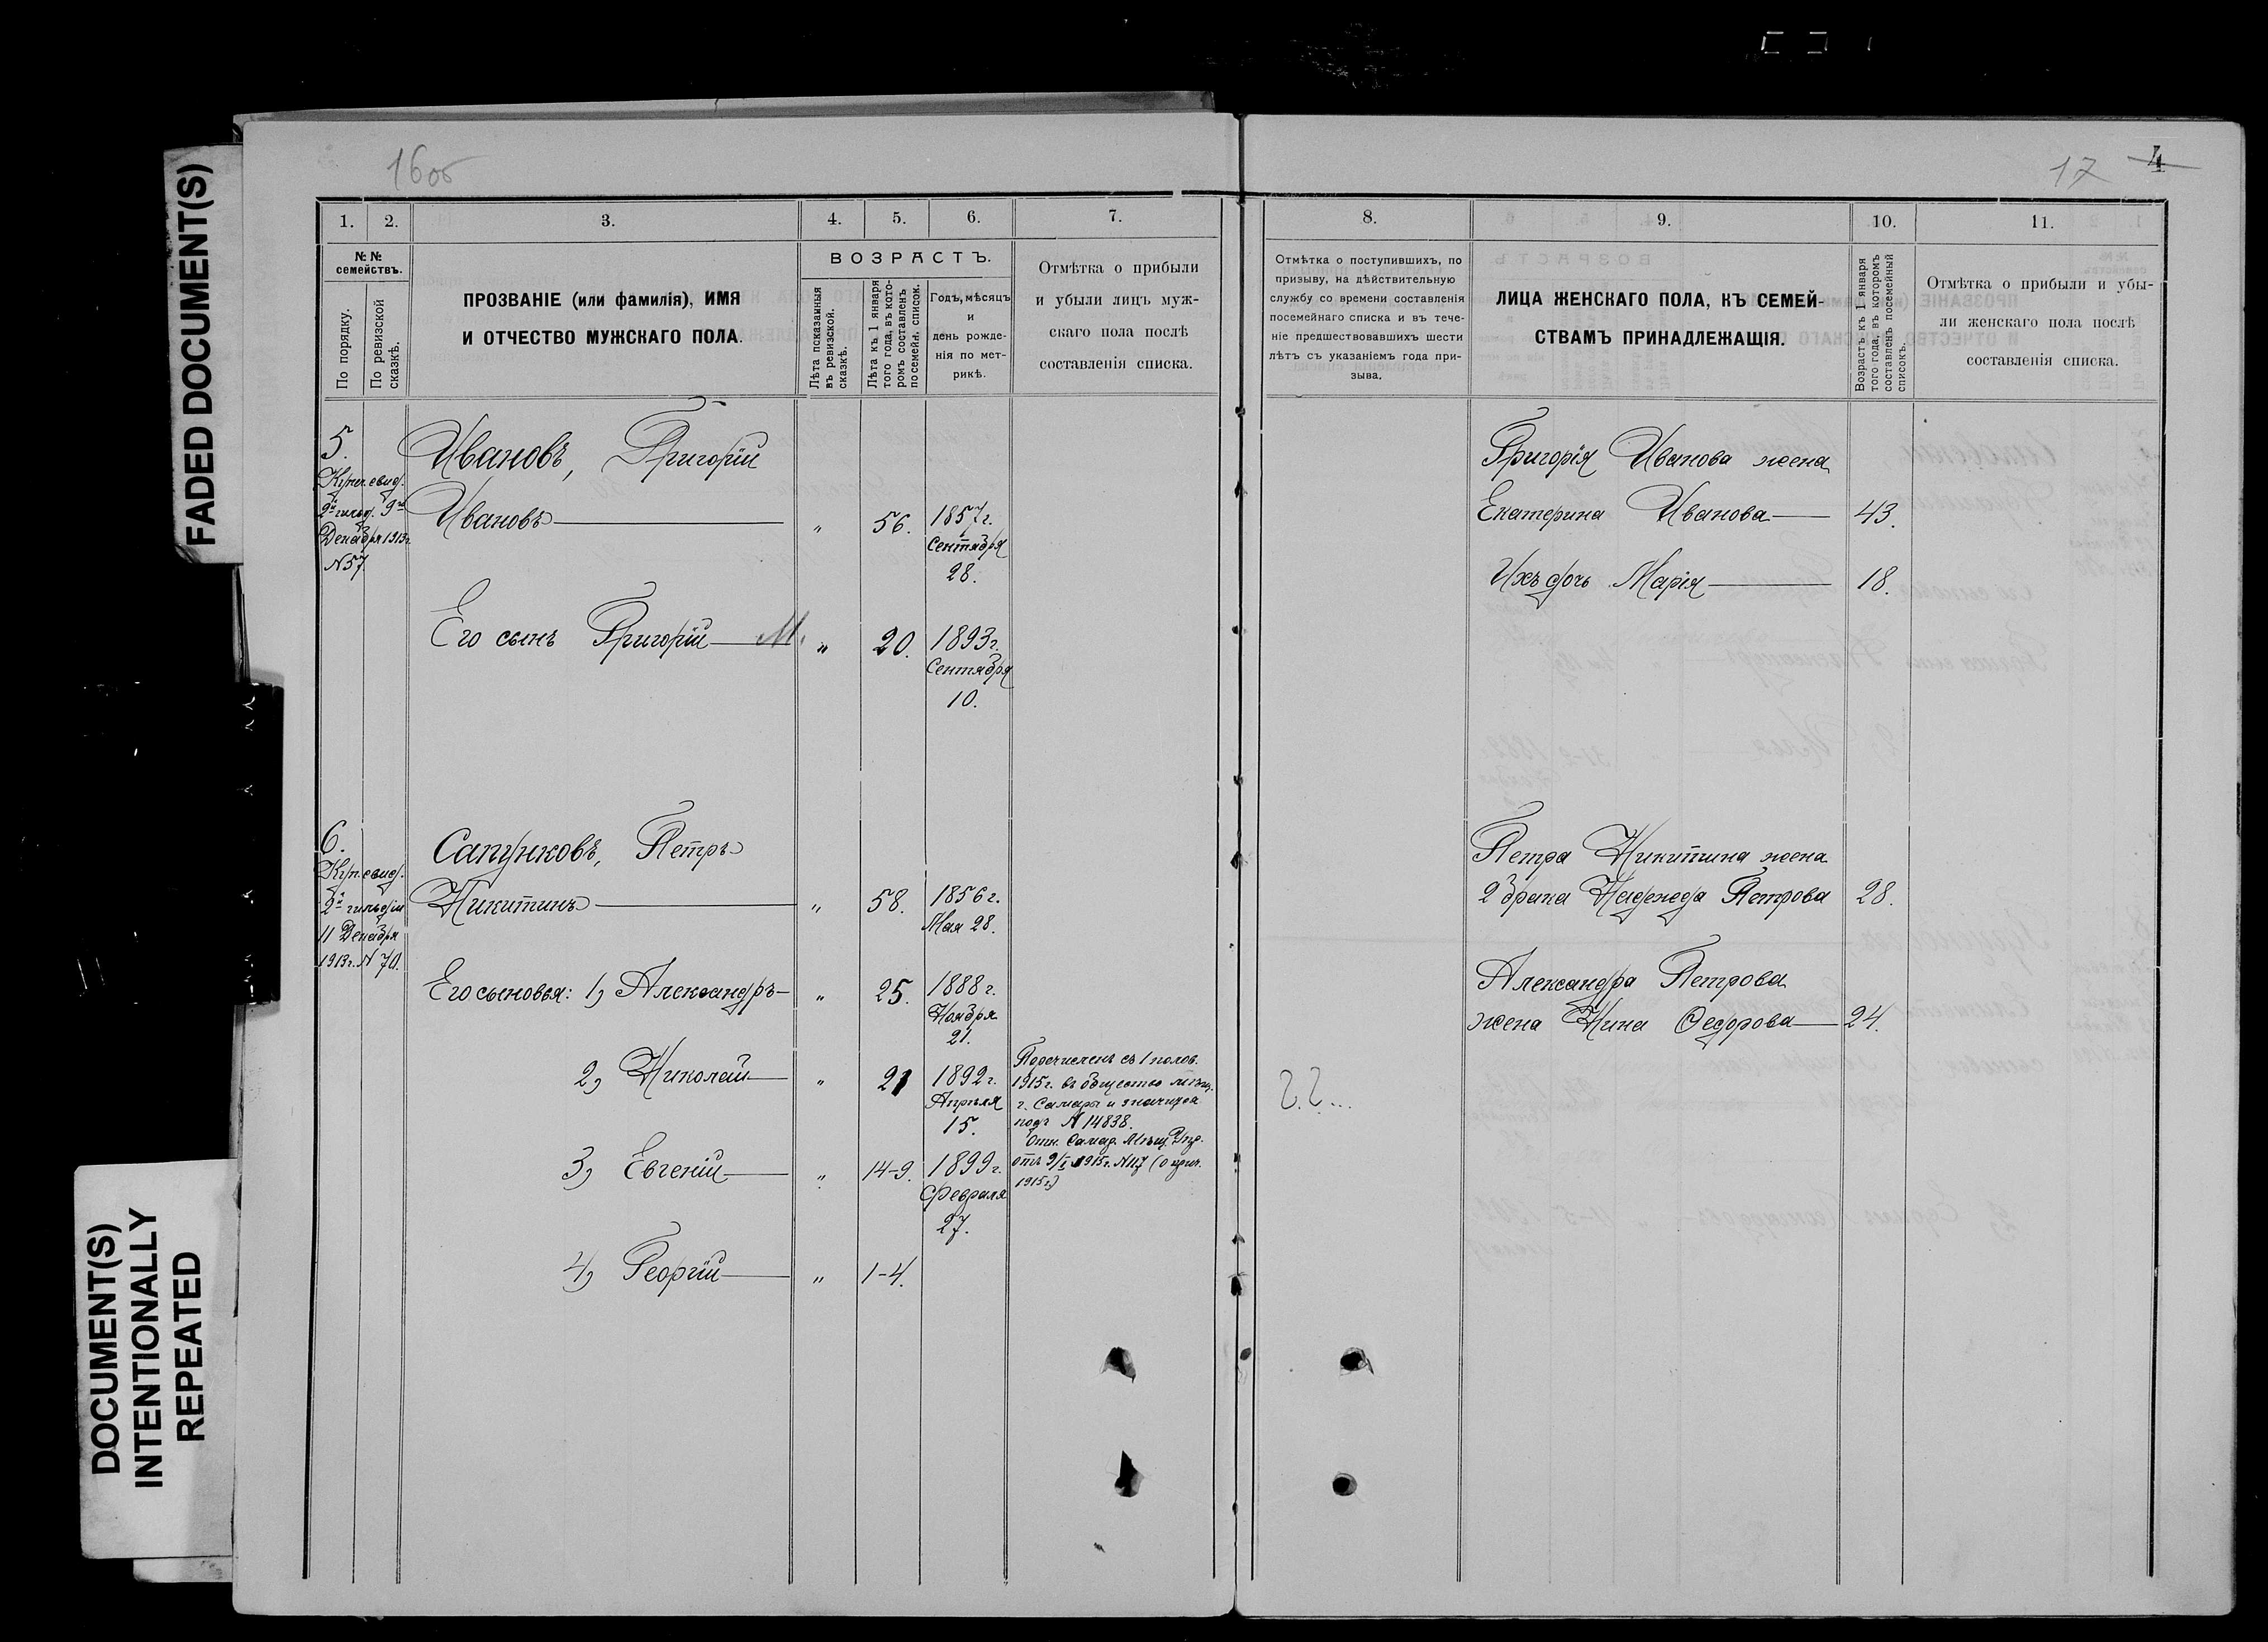 FADED DOCUMENT(S)
DOCUMENT(S)
INTENTIONALLY
REPEATED
16об
1. 2. 3. 4. 5. 6. 7.
№№
семействъ.
По порядку.
По ревизской
сказкѣ.
ПРОЗВАНІЕ (или фамилія), ИМЯ
И ОТЧЕСТВО МУЖСКАГО ПОЛА.
ВОЗРАСТЪ.
Лѣта показанныя
въ ревизской.
сказкѣ.
Лѣта къ 1 января
того года, въ кото-
ромъ составленъ
посемейн. список.
Годъ, мѣсяцъ
и
день рожде-
нія по мет-
рикѣ.
Отмѣтка о прибыли
и убыли лицъ муж-
скаго пола послѣ
составленія списка.
5.
Купч. свид.
2й гильд. 9го
Декабря 1913г.
N 57.
Ивановъ, Григорій
Ивановъ „ 56. 1857г.
Сентября
28.
Его сынъ Григорій М. „ 20. 1893г.
Сентября
10.
6.
Куп. свид.
2й гильдіи
11 Декабря
1913г. N 70.
Сапунковъ, Петръ
Никитинъ „ 58. 1856г.
Мая 28.
Его сыновья: 1) Александръ „ 25. 1888г.
Ноября
21.
2) Николай „ 21 1892г.
Апрѣля
15.
Перечисленъ съ 1 полов.
1915г. въ общество мѣщ.
г. Самары и значится
подъ N 14838.
Отн. Самар. Мѣщ. Упр.
отъ 9/I 1915г. N 117 (о прич.
1915г.)
3) Евгеній „ 14-9. 1899г.
Февраля
27.
4) Георгій „ 1-4.
17 4
8. 9. 10. 11.
Отмѣтка о поступившихъ, по
призыву, на дѣйствительную
службу со времени составленія
посемейнаго списка и въ тече-
ніе предшествовавшихъ шести
лѣтъ съ указаніемъ года при-
зыва.
ЛИЦА ЖЕНСКАГО ПОЛА, КЪ СЕМЕЙ-
СТВАМЪ ПРИНАДЛЕЖАЩІЯ.
Возрастъ къ 1 января
того года, въ которомъ
составленъ посемейный
списокъ.
Отмѣтка о прибыли и убы-
ли женскаго пола послѣ
составленія списка.
Григорія Иванова жена
Екатерина Иванова 43.
Ихъ дочь Марія 18.
Петра Никитина жена
2 брака Надежда Петрова 28.
Александра Петрова
жена Нина Федорова 24.